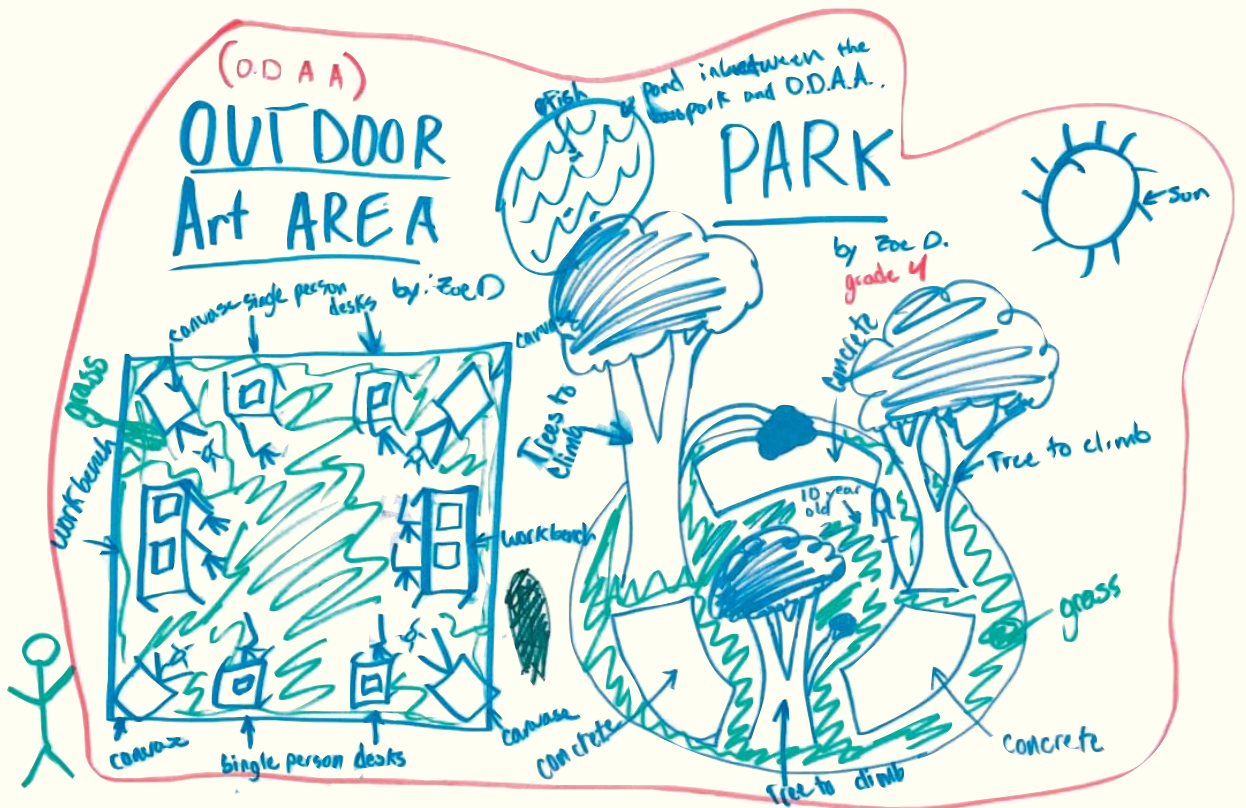 (O.D A A)
OUTDOOR
Art AREA
by: Zoe D
fish
pond inbetween the
park and O.D.A.A.
PARK
by Zoe D.
grade 4
sun
canvase
single person
desks
canvase
grass
workbench
workbench
canvase
single person desks
canvase
Trees to
climb
concrete
10 year
old
Tree to climb
grass
concrete
Tree to climb
concrete